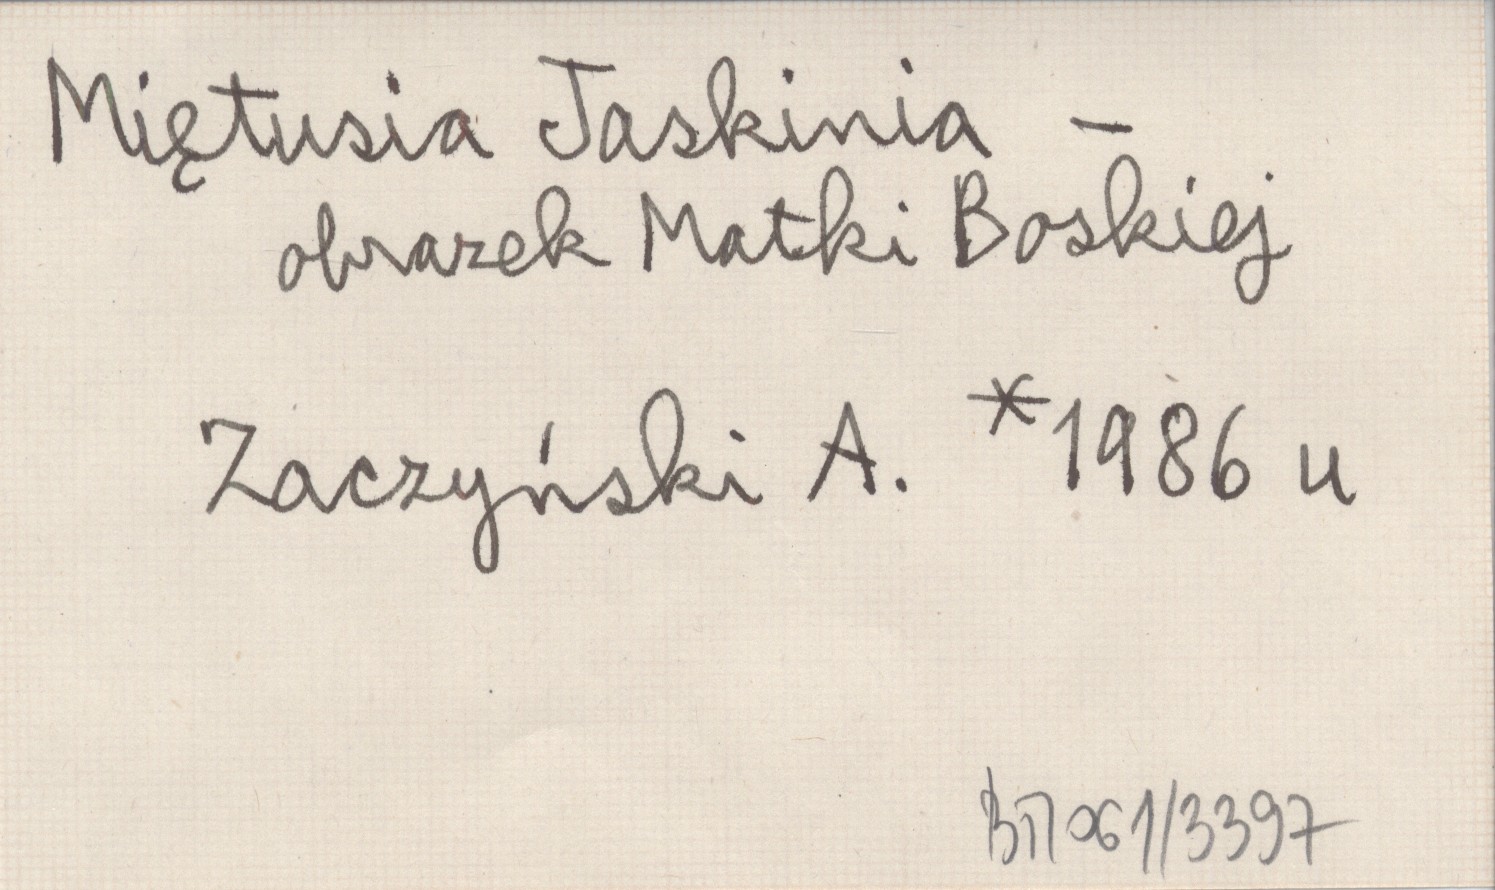 Miętusia Jaskinia –
obrazek Matki Boskiej
Zaczyński A. *1986 u
061/3397